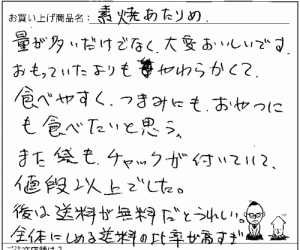 お買い上げ商品名： 素焼あたりめ.
量が多いだけでなく、大変おいしいです。
おもっていたよりもやわらかくて、
食べやすく、つまみにも、おやつに
も食べたいと思う。
また袋も、チャックが付いていて、
値段以上でした。
後は送料が無料だとうれしい。
全体にしめる送料の比率が高すぎ